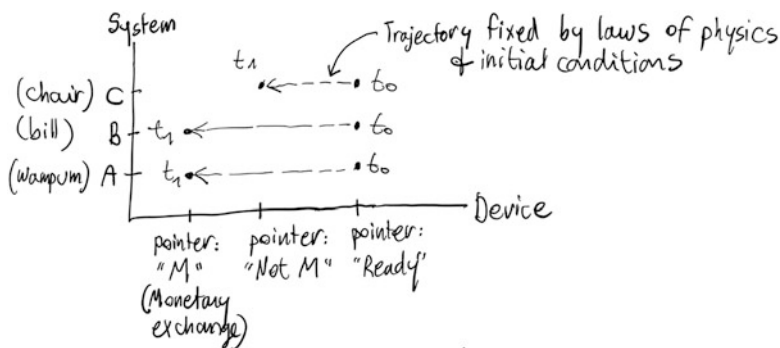 System
Trajectory fixed by laws of physics
& initial conditions
t₁
t₀
(chair) C
(bill) B
t₁
t₀
(wampum) A
t₁
t₀
Device
pointer:
"M"
(Monetary
exchange)
pointer:
"Not M"
pointer:
"Ready"